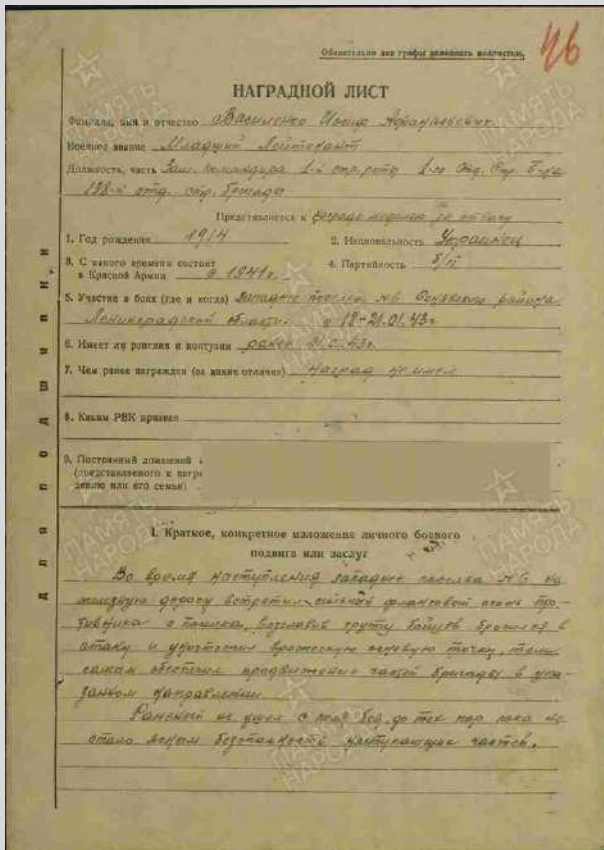 Обязательно все графы заполнять полностью.
46
НАГРАДНОЙ ЛИСТ
Фамилия, имя и отчество Василенко
Военное звание Младший Лейтенант
Должность, часть Зам. командира 1-й стр. роты 1-го Отд. Стр. Б-на
138-й отд. стр. бригады
Представляется к награде медалью За отвагу
1. Год рождения 1914
2. Национальность Украинец
3. С какого времени состоит
в Красной Армии с 1941г.
4. Партийность б/п
5. Участие в боях (где и когда) Западнее поселка №6 района
Ленинградской области. с 18-21.01.43г
6. Имеет ли ранения и контузии ранен 21.01.43г.
7. Чем ранее награжден (за какие отличия) наград не имел
8. Каким РВК призван
9. Постоянный домашний
(представляемого к награ-
ждению или его семьи)
Для подшивки
I. Краткое, конкретное изложение личного боевого
подвига или заслуг
Во время наступления западнее поселка №6 на
железную дорогу встретил сильный фланговый огонь про-
тивника с тошика, возглавив группу бойцов бросился в
атаку и уничтожил вражескую огневую точку, тем
самым обеспечил продвижение частей бригады в ука-
занном направлении.
Раненый не ушел с поля боя до тех пор пока не
стало ясным безопасность наступающих частей.
ПАМЯТЬ
НАРОДА